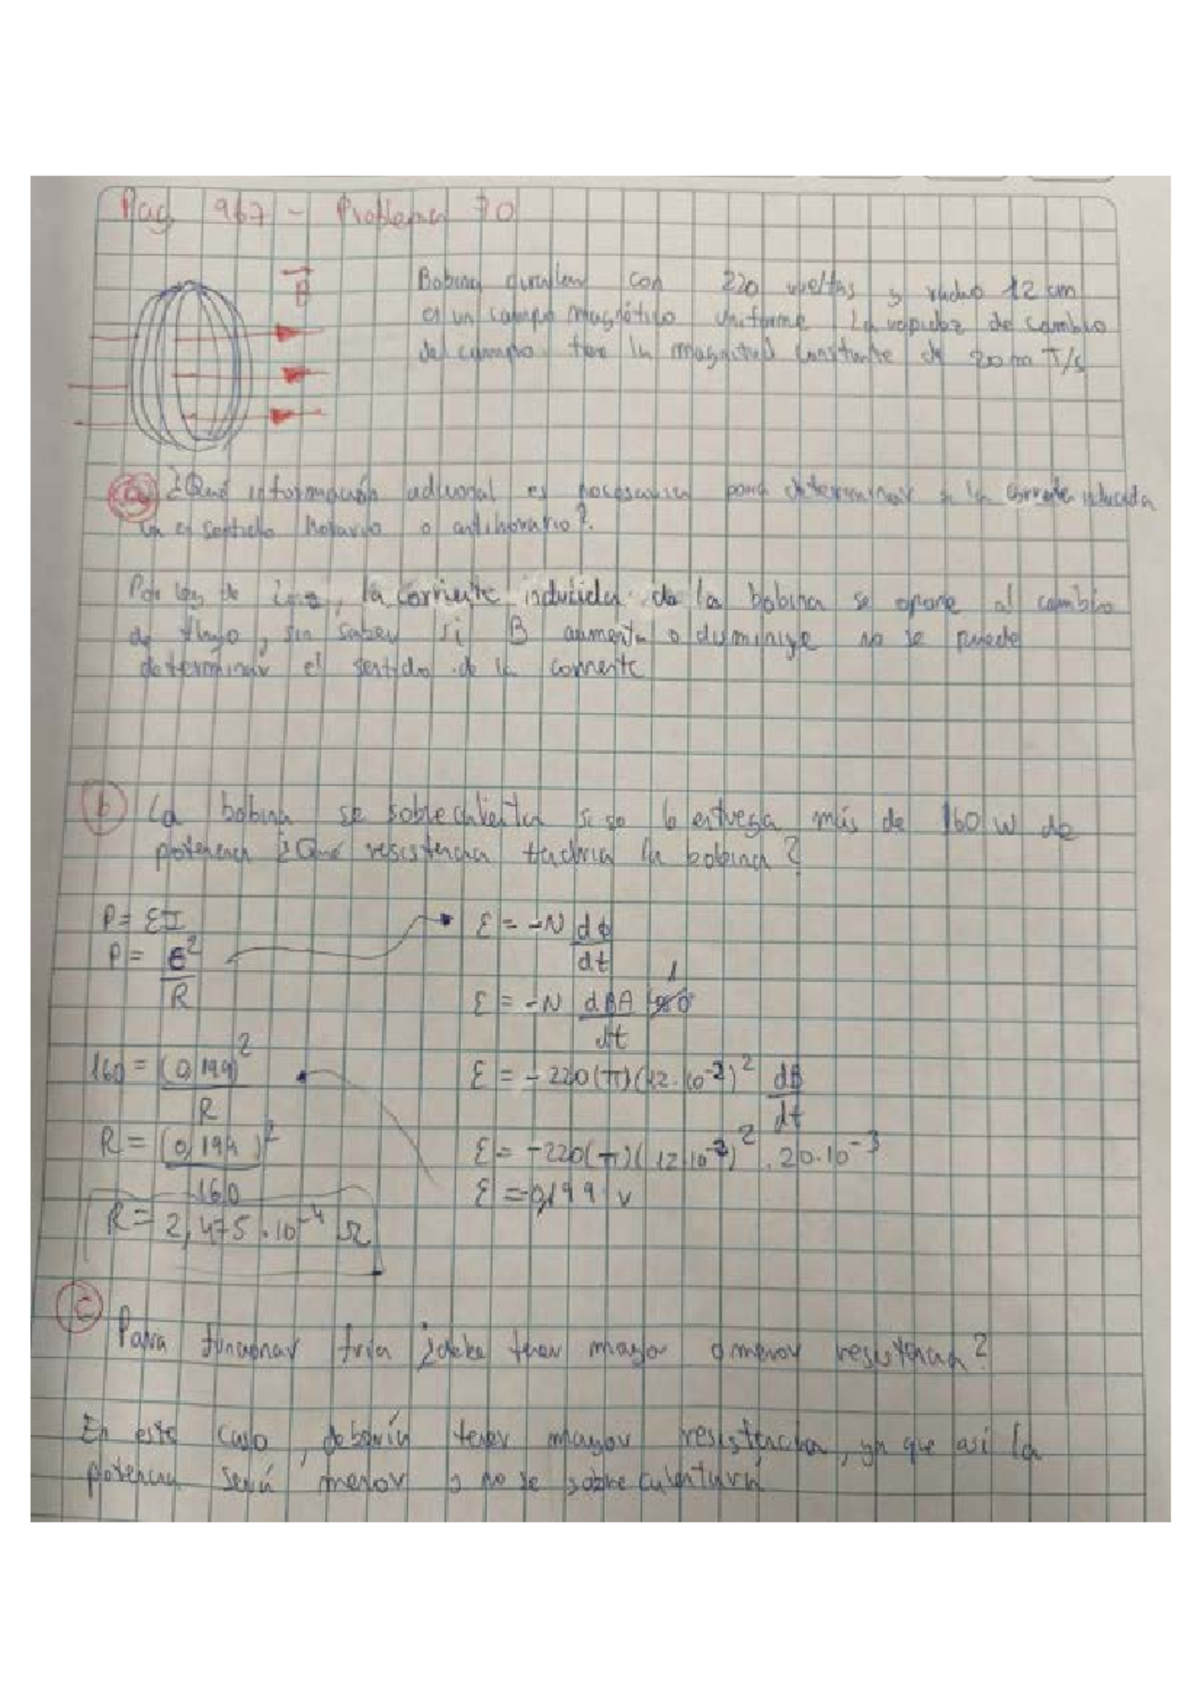 Pag 967 - Problema 70
B
Bobina circular con 220 vueltas y radio 12 cm
en un campo magnético uniforme La rapidez de cambio
del campo tiene la magnitud constante de 20 m T/s
a ¿Qué información adicional es necesaria para determinar si la corriente inducida
va en sentido horario o antihorario?
Por ley de Lenz, la corriente inducida de la bobina se opone al cambio
de flujo, sin saber si B aumenta o disminuye no se puede
determinar el sentido de la corriente
b La bobina se sobrecalienta si se le entrega más de 160 W de
potencia ¿Qué resistencia tendria la bobina?
P = εI
P = ε²/R
160 = (0,199)²/R
R = (0,199)²/160
R = 2,475 · 10⁻⁴ Ω
ε = -N dϕ/dt
ε = -N dBA/dt 1
ε = -220(π)(12·10⁻²)² dB/dt
ε = -220(π)(12·10⁻²)² · 20·10⁻³
ε = 0,199 v
c Para funcionar fria ¿debe tener mayor o menor resistencia?
En este caso, deberia tener mayor resistencia, ya que así la
potencia será menor y no se sobrecalentará